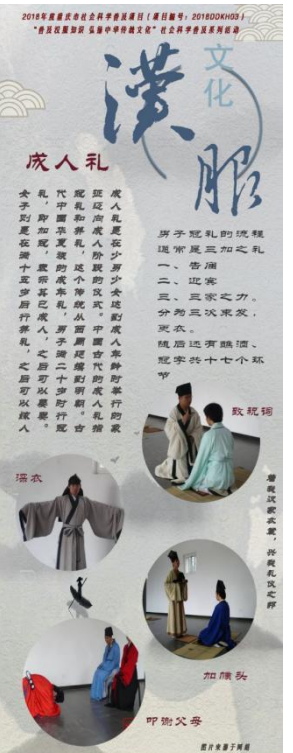 2018年度重庆市社会科学普及项目（项目编号：2018DDKH03）
“普及汉服知识 弘扬中华传统文化”社会科学普及系列活动
漢服
文化
成人礼
成人礼是在少男少女达到成人年龄时举行的象
征迈向成人阶段的仪式。中国古代的成人礼指
冠礼和笄礼，这个传统从西周延续到明朝。古
代中国华夏族的成年礼，男子满二十岁时行冠
礼，即加冠，表示其已成人，之后可以娶妻。
女子则是在满十五岁后行笄礼，之后可以嫁人
男子冠礼的流程
通常是三加之礼
一、告庙
二、迎宾
三、三冢之力。
分为三次束发，
更衣。
随后还有醮酒、
冠字共十七个环
节
致祝词
深衣
着我汉家衣裳，兴我礼仪之邦
加幞头
叩谢父母
图片来源于网络